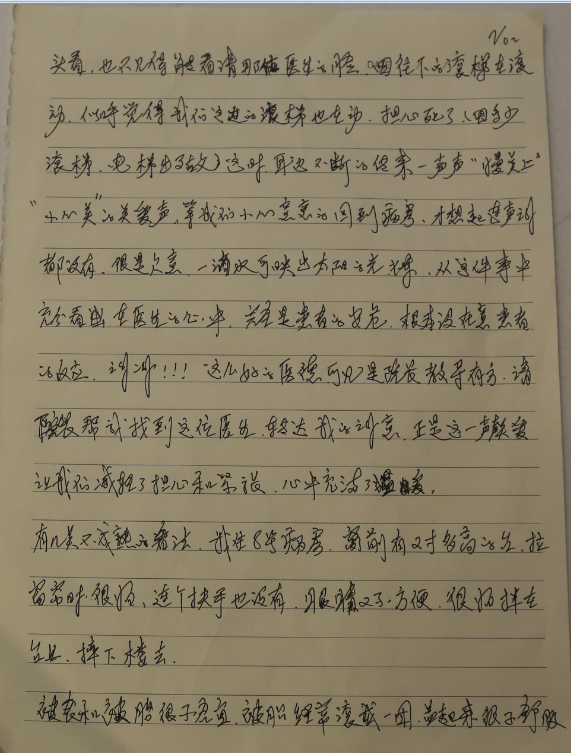 No2
头看，也不见得能看清那位医生的脸。因往下的滚梯在滚
动，似乎觉得我们这边的滚梯也在动，担心死了（因多少
滚梯、电梯出事故）这时耳边不断的传来一声声“慢关上”
“小心关”的关爱声，等我们小心意意的回到病房，才想起连声谢
都没有，很是欠意，一滴水可映出太阳的光辉，从这件事中
完全看出在医生的心中，关注是患者的安危，根本没在意患者
的反应，谢谢!!! 这么好的医德可见是院长教导有方，请
院长帮我找到这位医生，转达我的谢意，正是这一声声关爱
让我们减轻了担心和紧张，心中充满了温暖。
有几点不成熟的看法，我住8号病房，窗前有2寸多高的台，拉
窗帘时很怕，连个扶手也没有，眼睛又不方便，很怕摔在
台上，摔下楼去。
被套和被胎很不适宜，被胎经常滚成一团，盖起来很不舒服